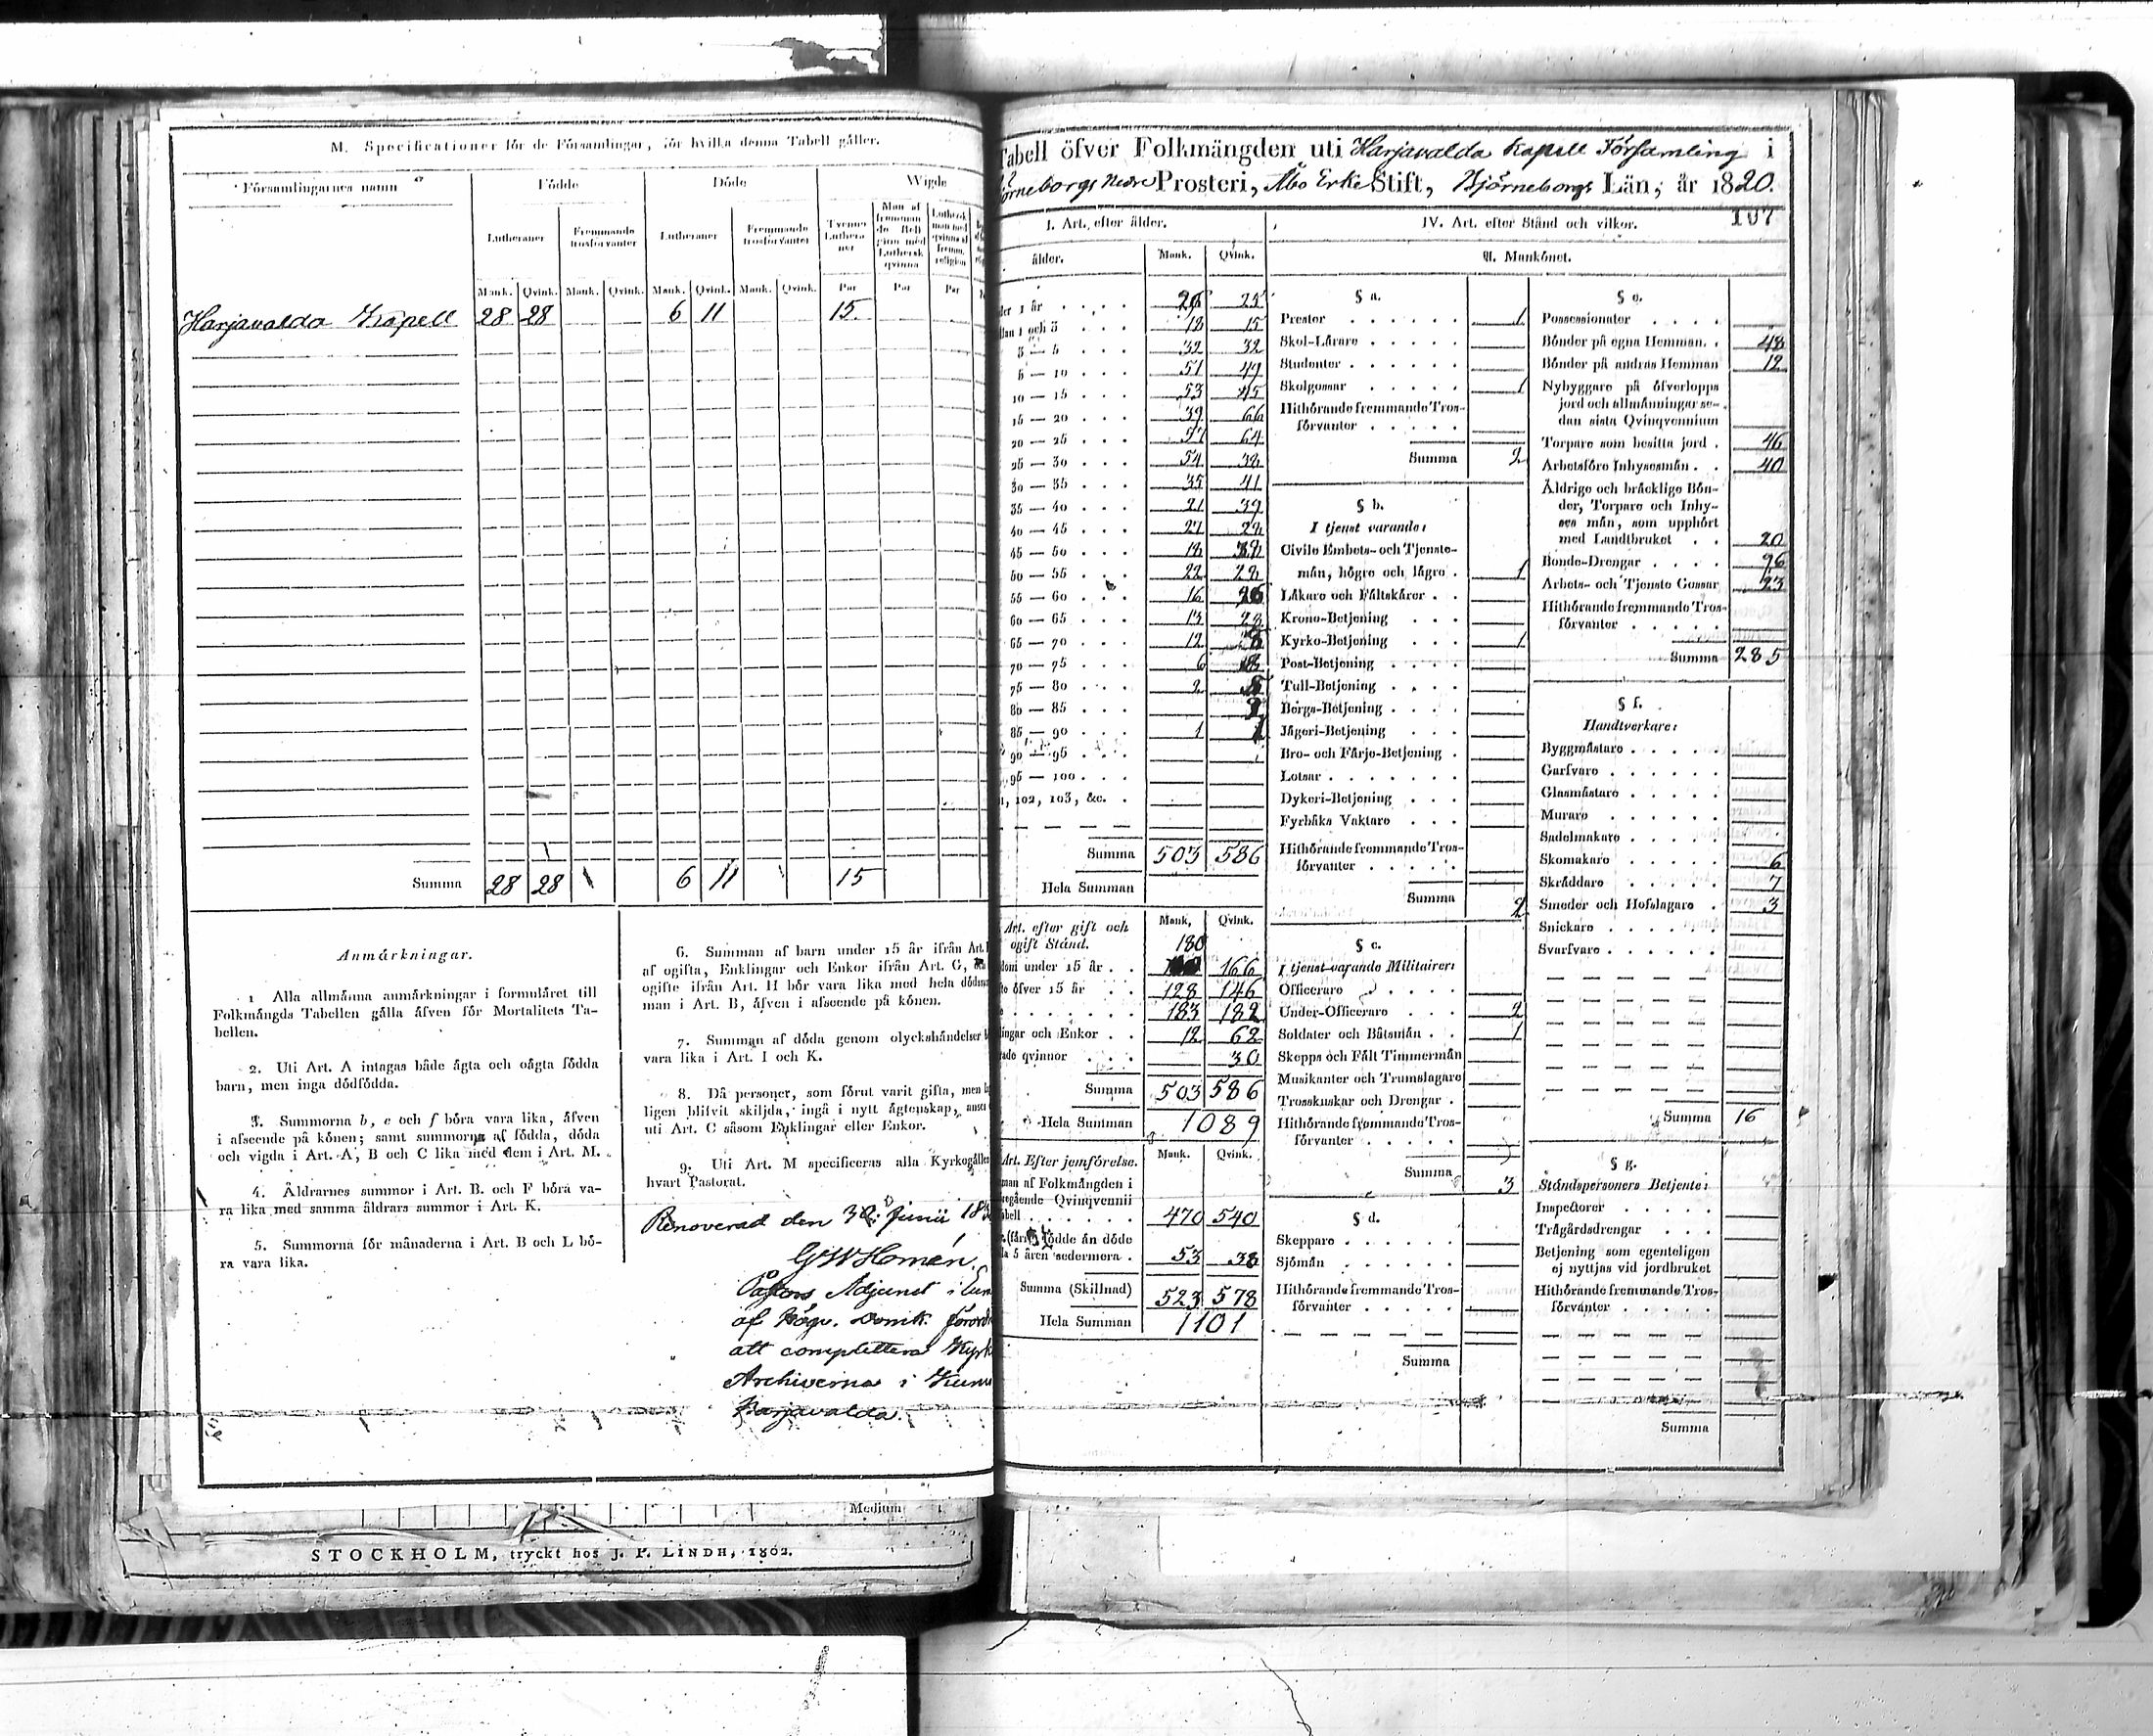 M. Specificationer för de Församlingar, för hvilka denna Tabell gäller.
Församlingarnes namn
Födde
Döde
Wigde
Lutheraner
Fremmande trosförvanter
Lutheraner
Fremmande trosförvanter
Tvenne Lutheraner
Man af fremmande Religion med Luthersk qvinna
Luthersk man med qvinna af fremm. religion
Mank. Qvink. Mank. Qvink. Mank. Qvink. Mank. Qvink. Par Par Par
Harjavalda Kapell 28 28 6 11 15
Summa 28 28 6 11 15
Anmärkningar.
1 Alla allmänna anmärkningar i formuläret till
Folkmängds Tabellen gälla äfven för Mortalitets Ta-
bellen.
2. Uti Art. A intagas både ägta och oägta födda
barn, men inga dödfödda.
3. Summorna b, e och f böra vara lika, äfven
i afseende på könen; samt summorna af födda, döda
och vigda i Art. A, B och C lika med dem i Art. M.
4. Åldrarnes summor i Art. B. och F böra va-
ra lika med samma åldrars summor i Art. K.
5. Summorna för månaderna i Art. B och L bö-
ra vara lika.
6. Summan af barn under 15 år ifrån Art.
af ogifta, Enklingar och Enkor ifrån Art. G,
ogifte ifrån Art. H bör vara lika med hela
man i Art. B, äfven i afseende på könen.
7. Summan af döda genom olyckshändelser
vara lika i Art. I och K.
8. Då personer, som förut varit gifta, men
ligen blifvit skiljda, ingå i nytt ägtenskap,
uti Art. C såsom Enklingar eller Enkor.
9. Uti Art. M specificeras alla
hvart Pastorat.
Renoverad den 30 Junii
G W Homén.
Pastors Adjunct i
af Högv. Domk.
att complettera
Archiverna i
Harjavalda.
Medium
STOCKHOLM, tryckt hos J. P. LINDH, 1802.
Tabell öfver Folkmängden uti Harjavalda Kapell Församling i
Björneborgs Nedre Prosteri, Åbo Erke Stift, Björneborgs Län, år 1820.
107
I. Art. efter ålder.
ålder. Mank. Qvink.
1 år 26 25
1 och 3 18 15
3 — 5 32 32
5 — 10 51 49
10 — 15 53 45
15 — 20 39 66
20 — 25 57 64
25 — 30 54 38
30 — 35 35 41
35 — 40 21 39
40 — 45 27 28
45 — 50 18
50 — 55 22 28
55 — 60 16
60 — 65 13 28
65 — 70 12
70 — 75 6
75 — 80 2
80 — 85
85 — 90 1 1
90 — 95
95 — 100
102, 103, &c.
Summa 503 586
Hela Summan
Art. efter gift och
ogift Stånd.
Mank, Qvink.
180
under 15 år 166
öfver 15 år 128 146
183 182
och Enkor 12 62
qvinnor 30
Summa 503 586
Hela Summan 1089
Art. Efter jemförelse. Mank. Qvink.
af Folkmängden i
Qvinqvennii
470 540
födde än döde
5 åren sedermera 53 38
Summa (Skillnad) 523 578
Hela Summan 1101
IV. Art. efter Stånd och vilkor.
A. Mankönet.
§ a.
Prester 1
Skol-Lärare
Studenter
Skolgossar 1
Hithörande fremmande Tros-
förvanter
Summa 2
§ b.
I tjenst varande:
Civile Embets- och Tjenste-
män, högre och lägre 1
Läkare och Fältskärer
Krono-Betjening
Kyrko-Betjening 1
Post-Betjening
Tull-Betjening
Bergs-Betjening
Jägeri-Betjening
Bro- och Färje-Betjening
Lotsar
Dykeri-Betjening
Fyrbåks Vaktare
Hithörande fremmande Tros-
förvanter
Summa 2
§ c.
I tjenst varande Militairer:
Officerare
Under-Officerare 2
Soldater och Båtsmän 1
Skepps och Fält Timmermän
Musikanter och Trumslagare
Trosskuskar och Drengar
Hithörande fremmande Tros-
förvanter
Summa 3
§ d.
Skeppare
Sjömän
Hithörande fremmande Tros-
förvanter
Summa
§ e.
Possessionater
Bönder på egna Hemman 48
Bönder på andras Hemman 12
Nybyggare på öfverlopps
jord och allmänningar se-
dan sista Qvinqvennium
Torpare som besitta jord 46
Arbetsföre Inhysesmän 40
Äldrige och bräcklige Bön-
der, Torpare och Inhy-
ses män, som upphört
med Landtbruket 20
Bonde-Drengar 96
Arbets- och Tjenste Gossar 23
Hithörande fremmande Tros-
förvanter
Summa 285
§ f.
Handtverkare:
Byggmästare
Garfvare
Glasmästare
Murare
Sadelmakare
Skomakare 6
Skräddare 7
Smeder och Hofslagare 3
Snickare
Svarfvare
Summa 16
§ g.
Ståndspersoners Betjente:
Inspector
Trägårdsdrengar
Betjening som egenteligen
ej nyttjas vid jordbruket
Hithörande fremmande Tros-
förvanter
Summa